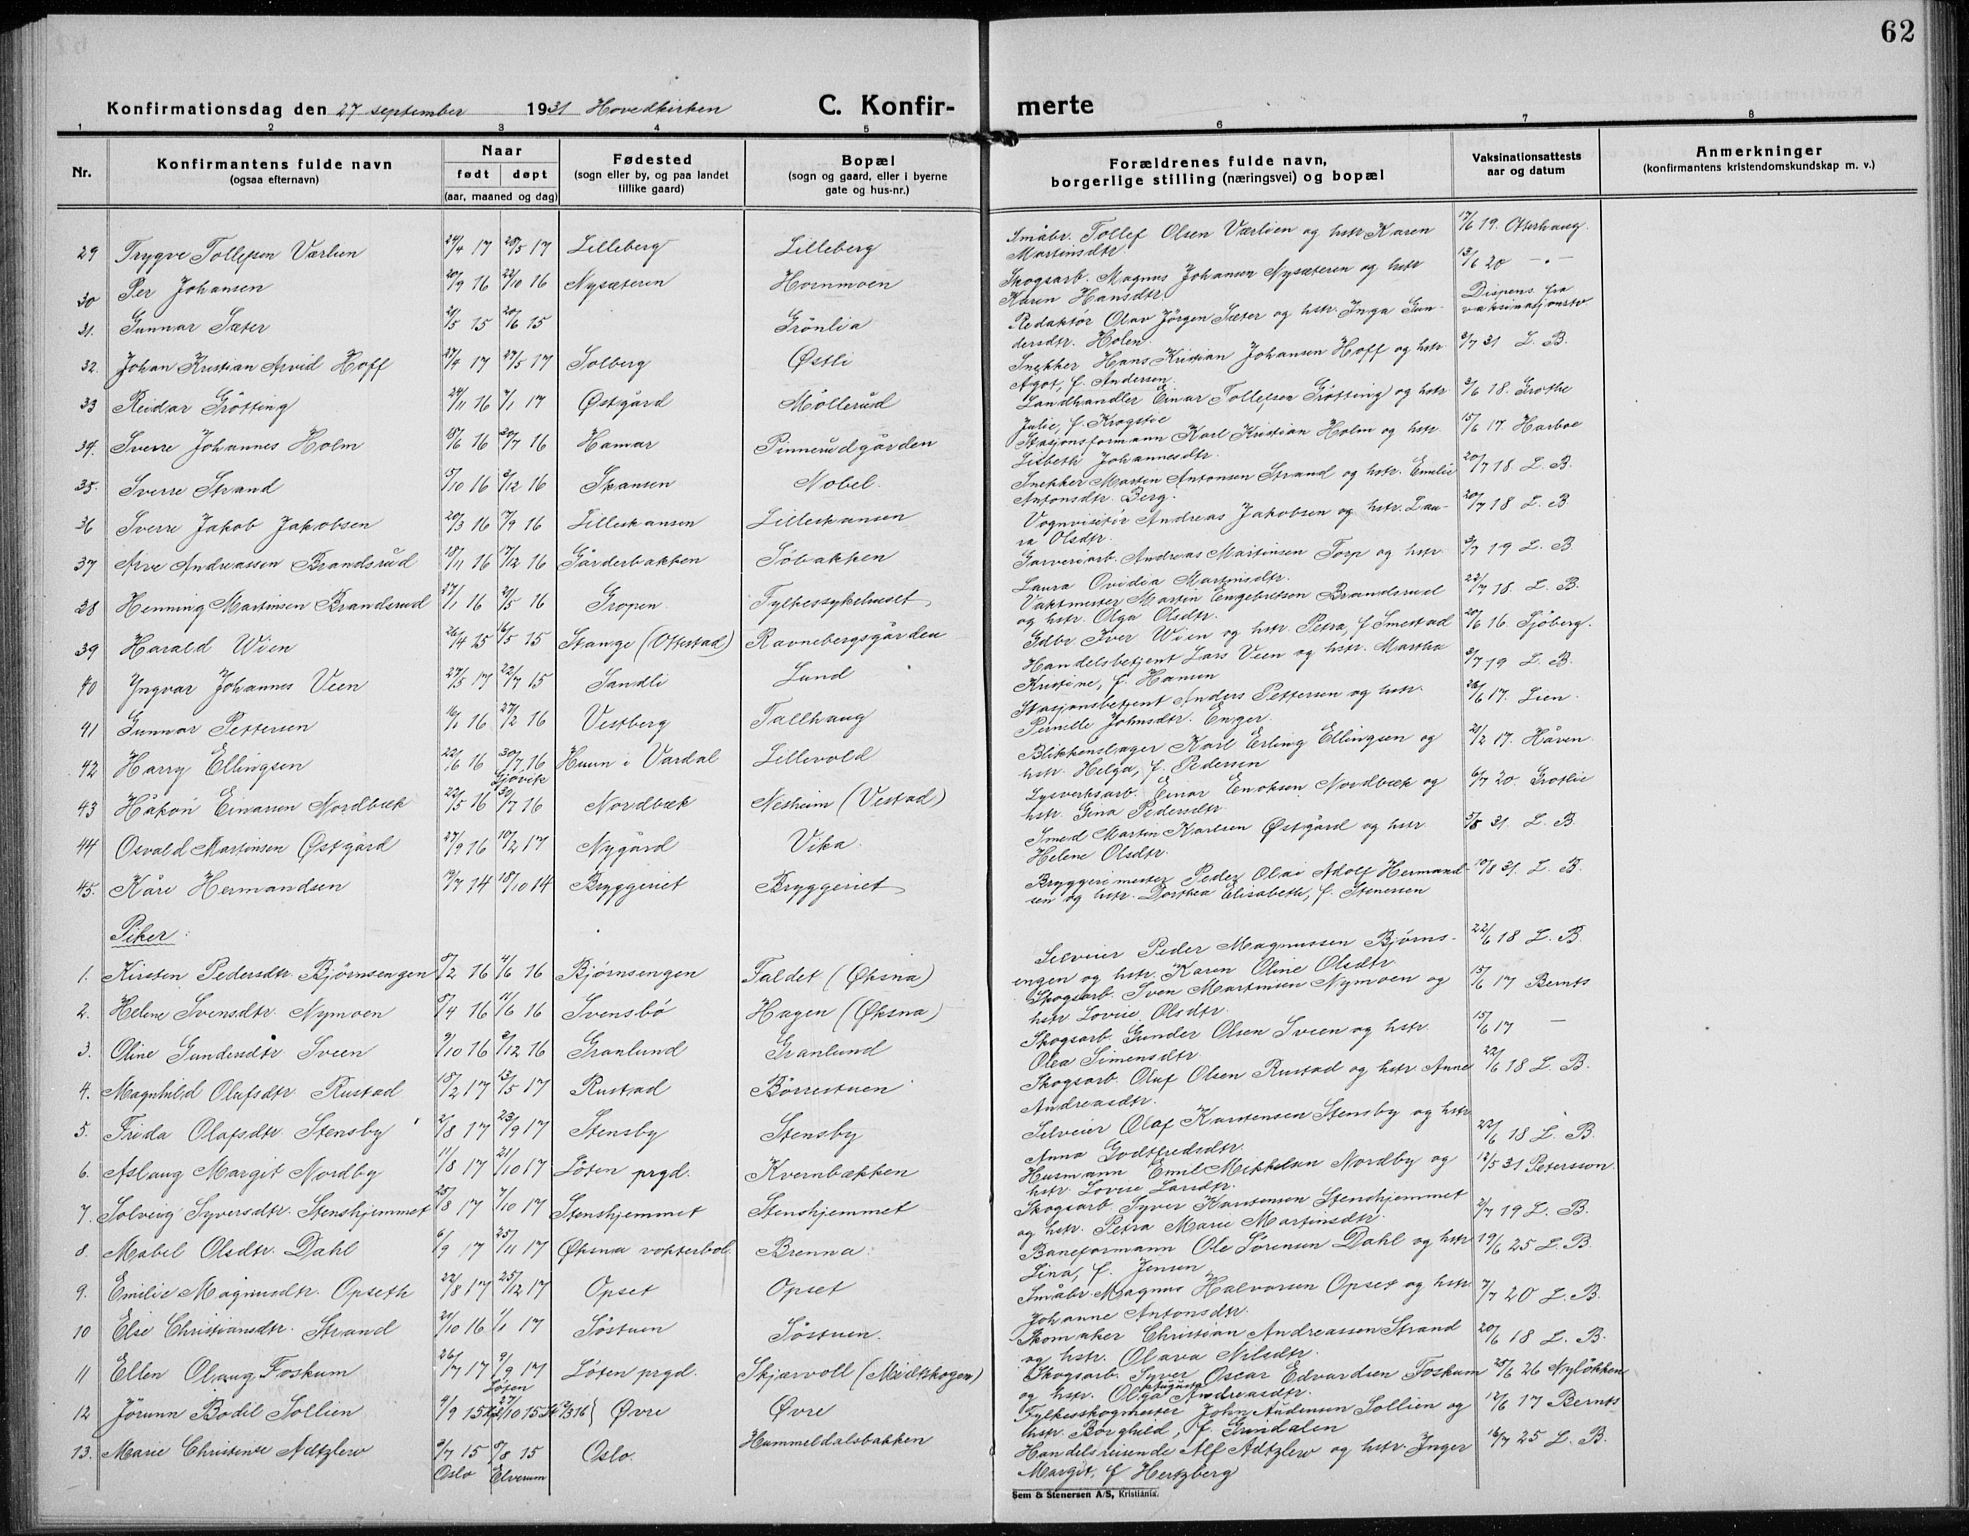 62
Konfirmationsdag den 27 september 1931 Hovedkirken C. Konfir- merte
1 2 3 4 5 6 7 8
Nr. Konfirmantens fulde navn (ogsaa efternavn) Naar født døpt (aar, maaned og dag) Fødested (sogn eller by, og paa landet tillike gaard) Bopæl (sogn og gaard, eller i byerne gate og hus-nr.) Forældrenes fulde navn, borgerlige stilling (næringsvei) og bopæl Vaksinationsattests aar og datum Anmerkninger (konfirmantens kristendomskundskap m. v.)
29 Trygve Tollefsen Værlien 24/4 17 28/5 17 Lilleberg Lilleberg Småbr. Tollef Olsen Værlien og hstr Karen Martinsdtr 17/6 19. Oterhaug.
30 Per Johansen 20/9 16 22/10 16 Nysæteren Hornmoen Skogsarb. Magnus Johansen Nysæteren og hstr Karen Hansdtr. 13/6 20 - " -
31. Gunnar Sæter 21/5 15 20/6 15 Grönlia Redaktør Olav Jörgen Sæter og hstr. Inga Gundersdtr. Holen. Dispens. fra vaksinasjonstv
32. Johan Kristian Arvid Hoff 27/4 17 27/5 17 Solberg Østli Snekker Hans Kristian Johansen Hoff og hstr. Agot, f. Andersen. 3/7 31 L. B.
33 Reidar Grötting 24/11 16 7/1 17 Østgård Möllerud Landhandler Einar Tollefsen Grötting og hstr Julie, f. Kragstie 3/6 18. Grothe
34. Sverre Johannes Holm 18/6 16 30/7 16 Hamar Pinnerudgården Stasjonsformann Karl Kristian Holm og hstr. Lisbeth Johannesdtr. 15/6 17. Harboe
35. Sverre Strand 5/10 16 3/12 16 Skansen Nobel. Snekker Marten Antonsen Strand og hstr. Emelie Antonsdtr. Berg. 20/7 18. L. B.
36 Sverre Jakob Jakobsen 20/3 16 7/9 16 Lilleskansen Lilleskansen Vognvisitör Andreas Jakobsen og hstr. Laura Olsdtr. 20/7 18 L. B
37 Arve Andreassen Brandsrud 18/11 16 17/12 16 Gårderbakken Söbakken Garveriarb. Andreas Martinsen Torp og hstr. Laura Ovidia Martinsdtr. 3/7 19 L. B
38 Henning Martinsen Brandsrud 27/1 16 21/5 16 Gropen. Fylkessykehuset Vaktmester Martin Engebretsen Brandsrud og hstr. Olga Olsdtr. 22/7 18. L. B.
39 Harald Wien 26/4 15 16/5 15 Stange (Ottestad) Ravnebergsgården Gdbr Iver Wien og hstr. Petra, f Smestad 20/6 16. Sjöberg.
40 Yngvar Johannes Veen 27/5 17 22/7 15 Sandli Lund Handelsbetjent Lars Veen og hstr. Martha Kristine, f. Hansen 3/7 19 L. B.
41 Gunnar Pettersen 16/1 16 27/2 16 Vestberg Tallhaug Stasjonsbetjent Anders Pettersen og hstr. Pernille Johnsdtr. Enger. 26/6 17. Lien.
42 Harry Ellingsen 22/6 16 30/7 16 Gjövik Hunn i Vardal Lillevold Blikkenslager Karl Erling Ellingsen og hstr. Helga, f. Pedersen 21/2 17. Håven.
43 Håkon Einarsen Nordbæk 22/5 16 30/7 16 Nordbæk Nesheim (Vestad) Lysverksarb. Einar Enoksen Nordbæk og hstr. Gina Pedersdtr 6/7 20. Grotlie
44 Osvald Martinsen Østgård 27/9 16 10/2 17 Nygård Vika. Smed Marten Karlsen Østgård og hstr. Helene Olsdtr. 3/8 31. L. B.
45. Kåre Hermandsen 19/7 14 18/10 14 Bryggeriet Bryggeriet Bryggerimester Peder Olai Adolf Hermandsen og hstr. Dorthea Elisabeth, f. Stenersen 10/8 31. L. B.
Piker:
1. Kirsten Pedersdtr. Bjørnsengen 8/2 16 4/6 16 Bjørnsengen Faldet (Øksna) Selveier Peder Magnussen Bjørnsengen og hstr. Karen Oline Olsdtr. 22/6 18 L. B
2. Helene Svensdtr. Nymoen 8/4 16 11/6 16 Svensbö Hagen (Øksna) Skogsarb. Sven Martinsen Nymoen og hstr Lovise Olsdtr. 15/6 17 Bernts
3. Oline Gundersdtr Sveen 9/10 16 3/12 16 Granlund Granlund Skogsarb. Gunder Olsen Sveen og hstr. Olea Simensdtr 15/6 17 -
4. Magnhild Olafsdtr Rustad 18/2 17 13/5 17 Rustad Börrestuen Skogsarb. Oluf Olsen Rustad og hstr. Anne Andreasdtr. 22/6 18 L. B
5. Frida Olafsdtr. Stensby 2/8 17 23/9 17 Stensby Stensby Selveier Olaf Karstensen Stensby og hstr Anna Godtfredsdtr. 22/6 18 L. B.
6. Aslaug Margit Nordby 11/8 17 21/10 17 Löten prgd. Kvernbækken Husmann Emil Mikkelsen Nordby og hstr. Lovise Larsdtr. 12/5 31 Petersson
7. Solveig Syversdtr. Stenshjemmet 25/8 17 7/10 17 Stenshjemmet Stenshjemmet Skogsarb. Syver Karstensen Stenshjemmet og hstr. Petra Marie Martinsdtr. 2/7 19 L. B.
8. Mabel Olsdtr. Dahl 6/9 17 25/11 17 Øksna vokterbol. Brenna. Baneformann Ole Sørensen Dahl og hstr Lina, f. Jensen 19/6 25 L. B
9. Emilie Magnusdtr. Opseth 22/8 17 25/12 17 Opset Opset Småbr. Magnus Halvorsen Opset og hstr. Johanne Antonsdtr. 7/7 20 L. B.
10 Else Christiansdtr. Strand 21/10 16 1/1 17 Söstuen Söstuen. Skomaker Christian Andreassen Strand og hstr. Olava Nilsdtr. 20/6 18 L. B.
11 Ellen Olaug Foskum 26/7 17 9/9 17 Löten Löten prgd. Skjærvoll (Midtskogen) Skogsarb. Syver Oscar Edvardsen Foskum og hstr. Olga Augusta Andreasdtr. 25/6 26 Nylökken
12 Jörunn Bodil Sollien 4/9 15 27/10 15 Øvre Øvre Fylkesskogmester John Andersen Sollien og hstr. Borghild, f. Grindalen 12/6 17 Bernts
13. Marie Christense Adtzlew 3/7 15 Oslo 8/8 15 Elverum Oslo. Hummeldalsbakken Handelsreisende Alf Adtzlew og hstr. Inger Margit, f Hertzberg 16/7 25 L. B.
Sem & Stenersen A/S, Kristiania.